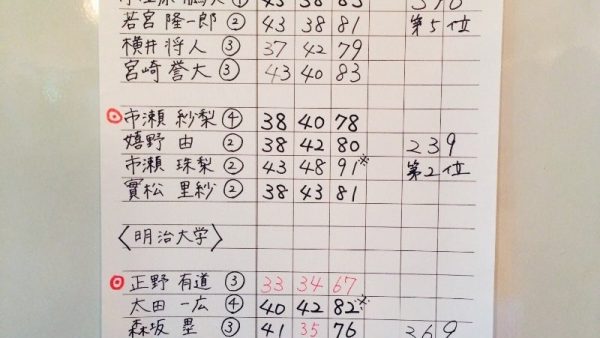 ① 43 38 83 376
若宮 隆一郎 ② 43 38 81 第5位
横井 将人 ③ 37 42 79
宮崎 誉大 ③ 43 40 83
市瀬 紗梨 ④ 38 40 78
嬉野 由 ② 38 42 80 239
市瀬 珠梨 ② 43 48 91※ 第2位
實松 里紗 ② 38 43 81
〈明治大学〉
正野 有道 ③ 33 34 67
太田 一広 ④ 40 42 82※
森坂 塁 ③ 41 35 76 369